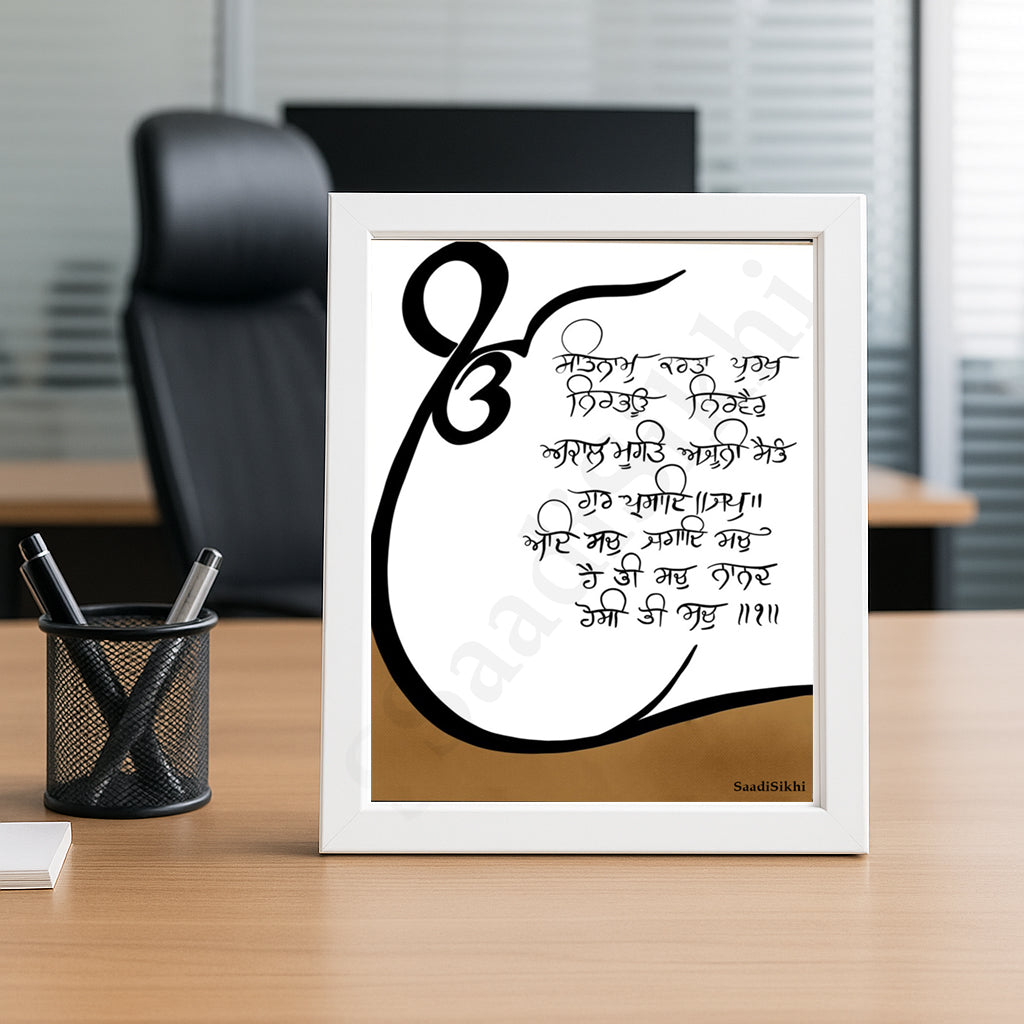 ੴ
ਸਤਿਨਾਮੁ ਕਰਤਾ ਪੁਰਖੁ
ਨਿਰਭਉ ਨਿਰਵੈਰੁ
ਅਕਾਲ ਮੂਰਤਿ ਅਜੂਨੀ ਸੈਭੰ
ਗੁਰ ਪ੍ਰਸਾਦਿ ॥ਜਪੁ॥
ਆਦਿ ਸਚੁ ਜੁਗਾਦਿ ਸਚੁ
ਹੈ ਭੀ ਸਚੁ ਨਾਨਕ
ਹੋਸੀ ਭੀ ਸਚੁ ॥੧॥
SaadiSikhi
Saadisikhi